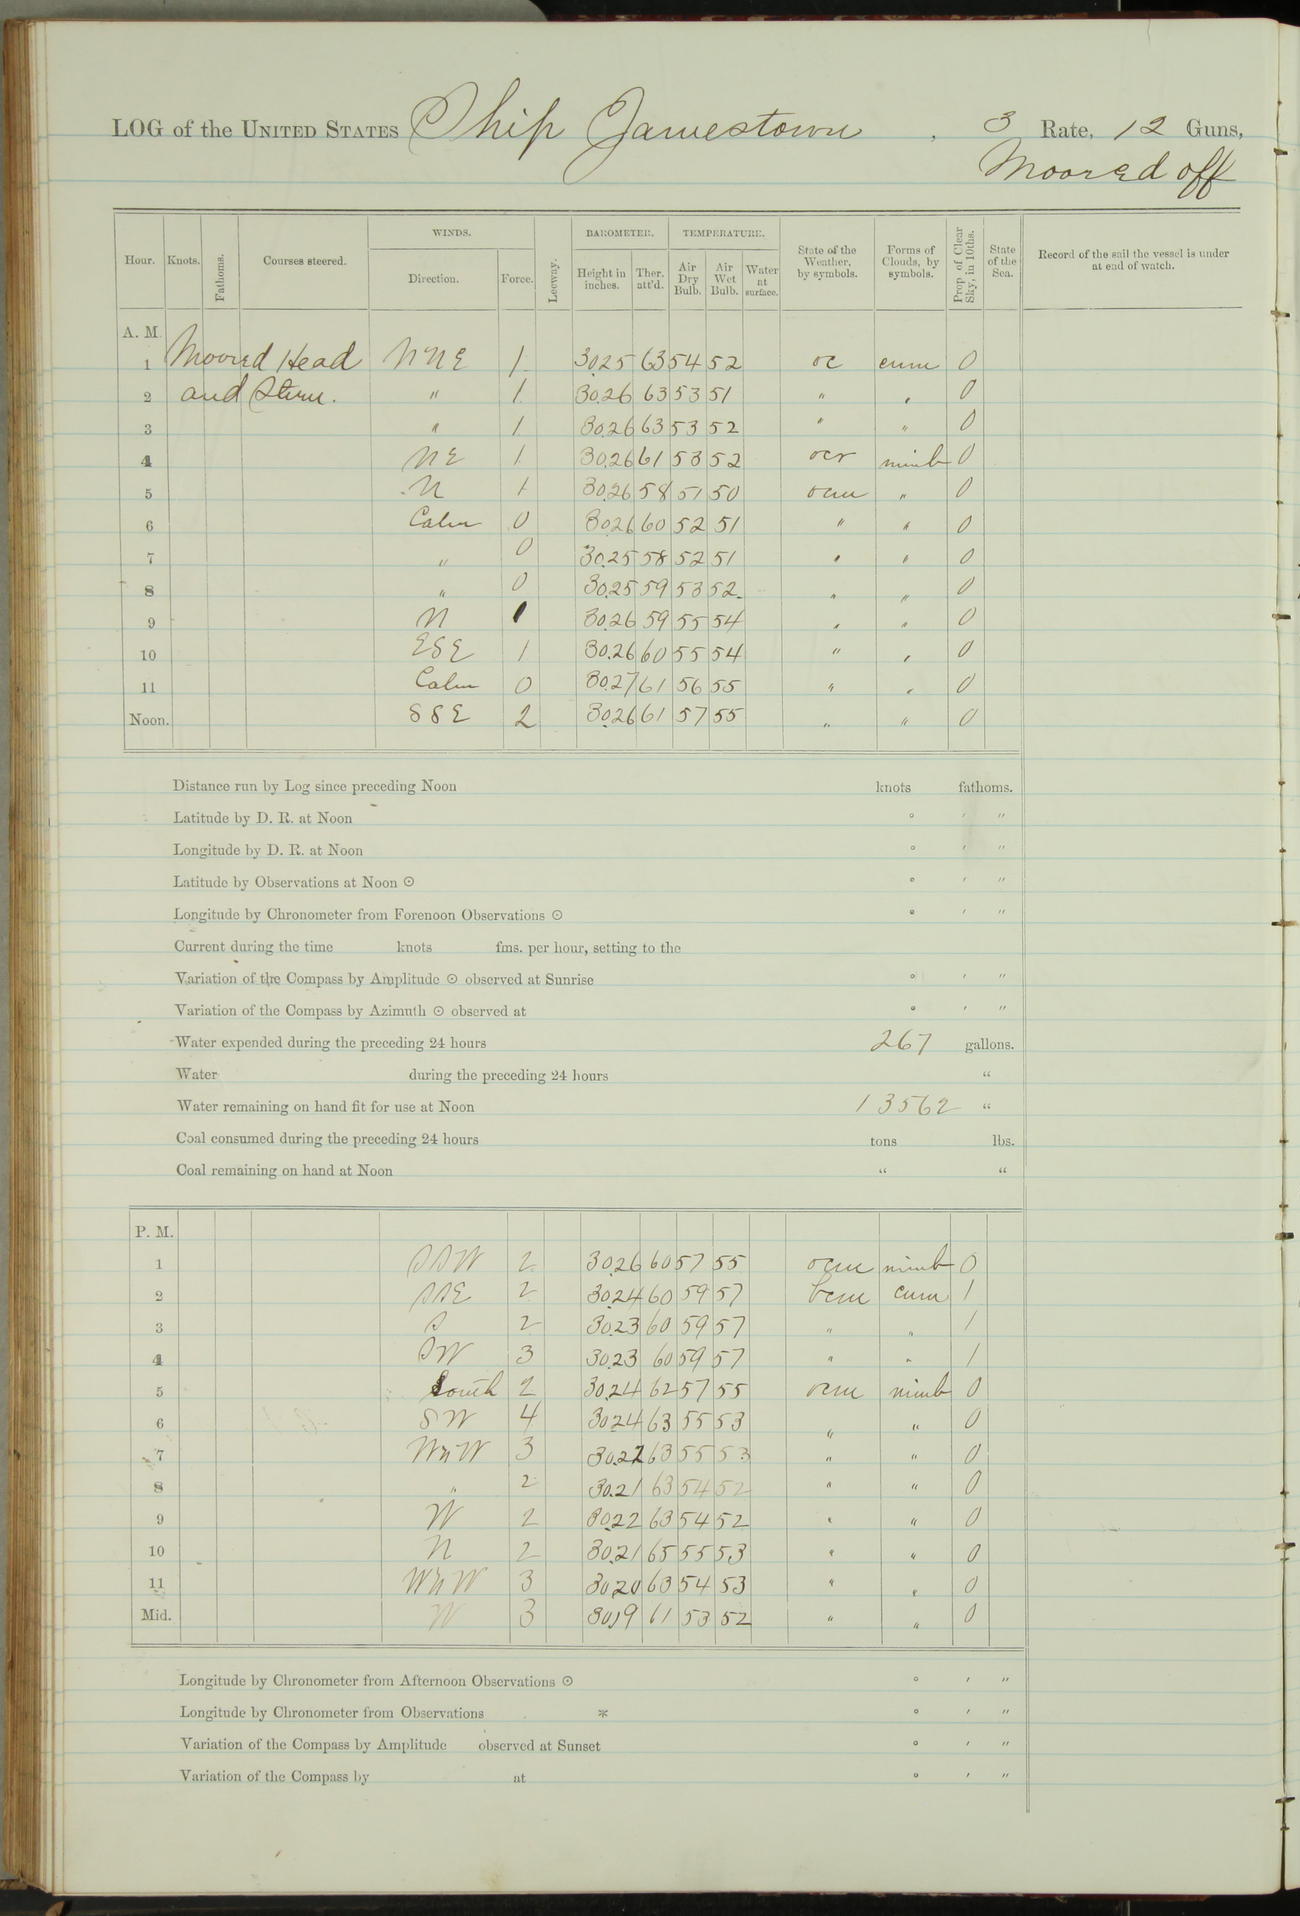 LOG of the UNITED STATES Ship Jamestown, 3 Rate, 12 Guns,
Moored off
Hour. Knots. Fathoms. Courses steered. WINDS. Direction. Force. Leeway. BAROMETER. Height in inches. Ther. att'd. TEMPERATURE. Air Dry Bulb. Air Wet Bulb. Water at surface. State of the Weather, by symbols. Forms of Clouds, by symbols. Prop. of Clear Sky, in 10ths. State of the Sea. Record of the sail the vessel is under at end of watch.
A. M.
1 Moored Head NNE 1 30.25 63 54 52 oc cum 0
2 and Stern. " 1 30.26 63 53 51 " " 0
3 " 1 30.26 63 53 52 " " 0
4 NE 1 30.26 61 53 52 ocr nimb 0
5 N 1 30.26 58 51 50 ocm " 0
6 Calm 0 30.26 60 52 51 " " 0
7 " 0 30.25 58 52 51 " " 0
8 " 0 30.25 59 53 52 " " 0
9 N 1 30.26 59 55 54 " " 0
10 ESE 1 30.26 60 55 54 " " 0
11 Calm 0 30.27 61 56 55 " " 0
Noon. SSE 2 30.26 61 57 55 " " 0
Distance run by Log since preceding Noon knots fathoms.
Latitude by D. R. at Noon ° ′ ″
Longitude by D. R. at Noon ° ′ ″
Latitude by Observations at Noon ⊙ ° ′ ″
Longitude by Chronometer from Forenoon Observations ⊙ ° ′ ″
Current during the time knots fms. per hour, setting to the
Variation of the Compass by Amplitude ⊙ observed at Sunrise ° ′ ″
Variation of the Compass by Azimuth ⊙ observed at ° ′ ″
Water expended during the preceding 24 hours 267 gallons.
Water during the preceding 24 hours "
Water remaining on hand fit for use at Noon 13562 "
Coal consumed during the preceding 24 hours tons lbs.
Coal remaining on hand at Noon " "
P. M.
1 SSW 2 30.26 60 57 55 ocm nimb 0
2 SSE 2 30.24 60 59 57 bcm cum 1
3 S 2 30.23 60 59 57 " " 1
4 SW 3 30.23 60 59 57 " " 1
5 South 2 30.24 62 57 55 ocm nimb 0
6 SW 4 30.24 63 55 53 " " 0
7 WNW 3 30.22 63 55 53 " " 0
8 " 2 30.21 63 54 52 " " 0
9 W 2 30.22 63 54 52 " " 0
10 N 2 30.21 65 55 53 " " 0
11 WNW 3 30.20 63 54 53 " " 0
Mid. W 3 30.19 61 53 52 " " 0
Longitude by Chronometer from Afternoon Observations ⊙ ° ′ ″
Longitude by Chronometer from Observations * ° ′ ″
Variation of the Compass by Amplitude observed at Sunset ° ′ ″
Variation of the Compass by at ° ′ ″